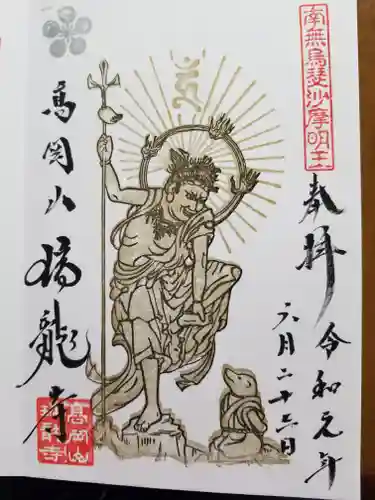 南無烏瑟沙摩明王
奉拝
令和元年
六月二十二日
高岡山
瑞龍寺
高岡山
瑞龍寺